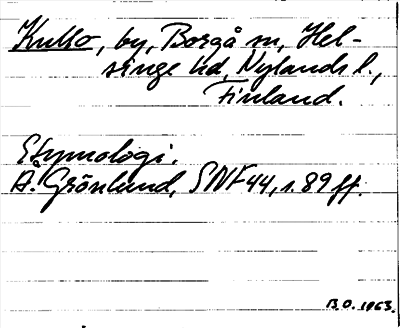 Kullo, by, Borgå sn, Hel-
singe hd, Nylands l.,
Finland.
Etymologi.
Å. Grönlund, SNF 44, s. 89 ff.
B.O. 1963.